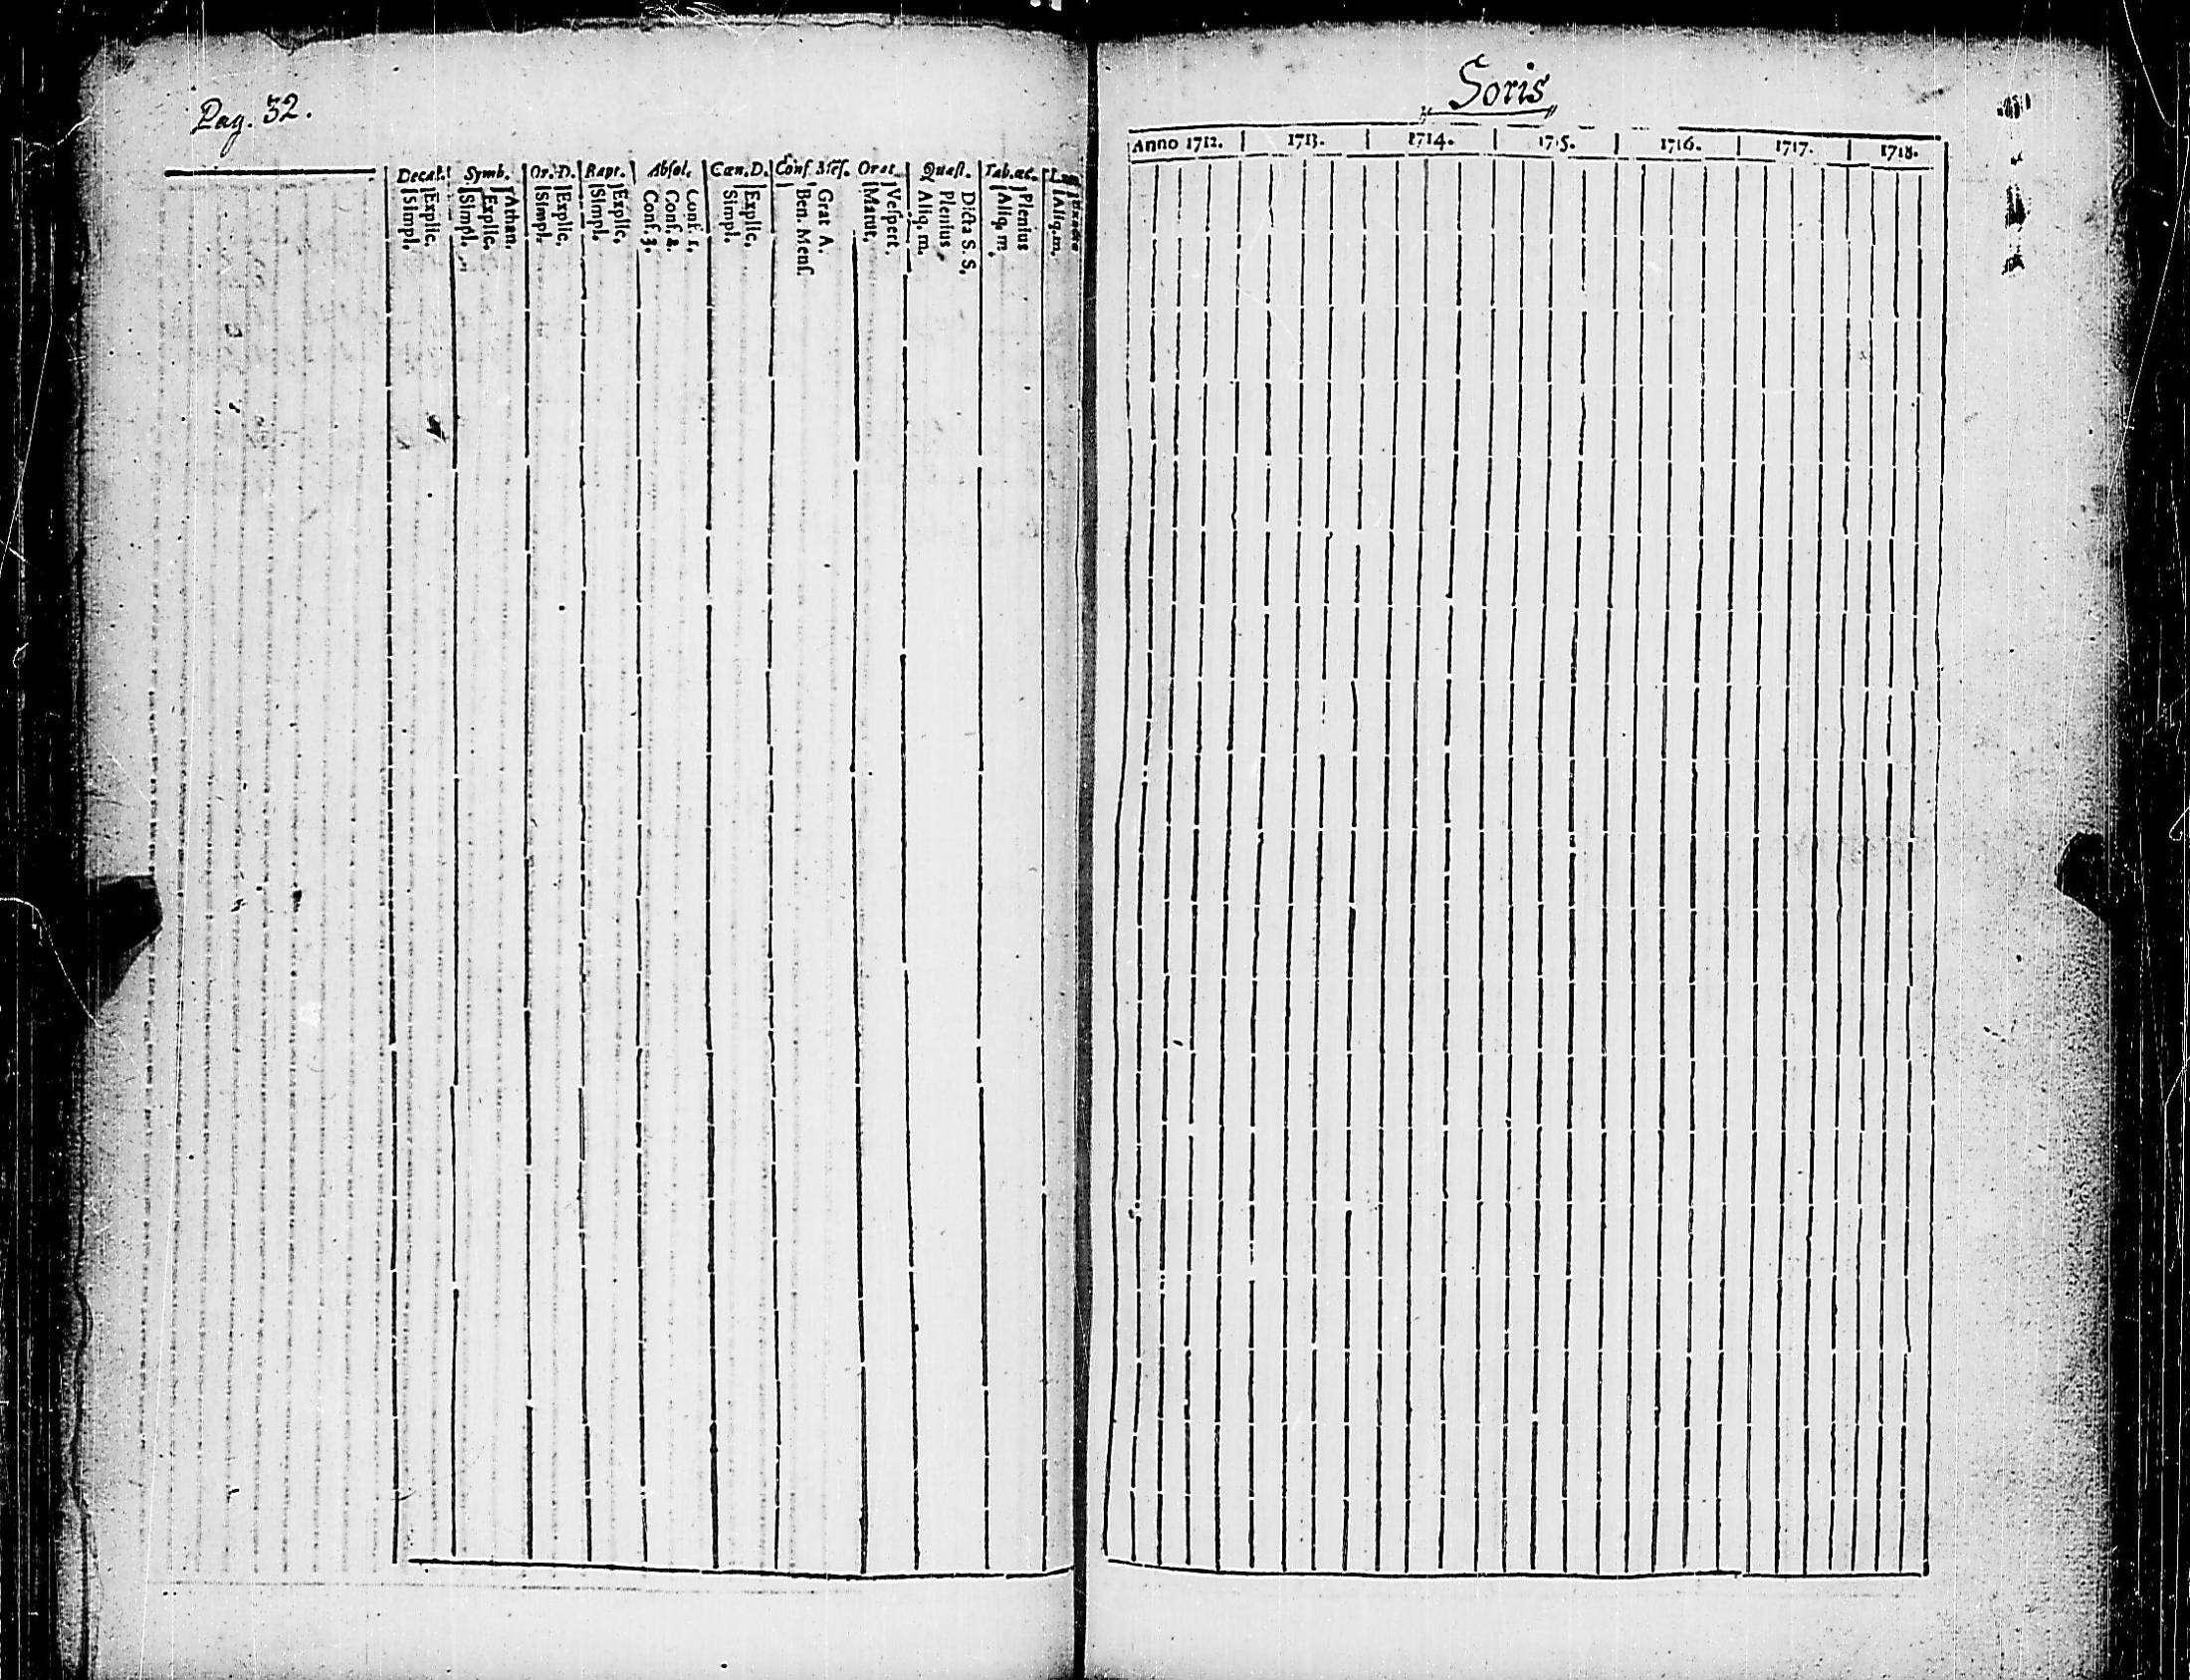 Pag. 32.
Decal. Symb. Or. D. Bapt. Absol. Cœn. D. Conf. Orat. Quæst. Tab. œc.
Simpl. Explic. Simpl. Explic. Athan. Simpl. Explic. Simpl. Explic. Conf. 3. Conf. 2. Conf. 1. Simpl. Explic. Ben. Menſ. Grat A. Matut. Veſpert. Aliq. m. Plenius Dicta S. S. Aliq. m. Plenius Aliq. m.
Soris
Anno 1712. 1713. 1714. 1715. 1716. 1717. 1718.